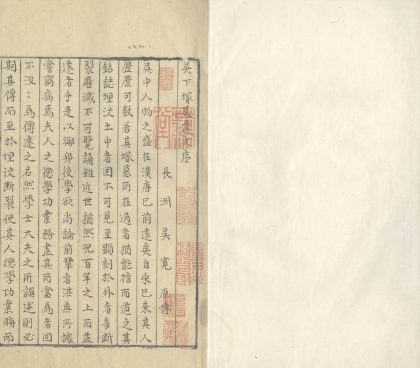 吳下冢墓遺文序
長洲吳寬原博
吳中人物之盛在漢唐已前遠矣自宋已來其人
歷歷可數若其塚墓所在過者猶能指而道之其
銘誌埋沒土中者固不可見至顯刻於外者多斷
裂磨滅不可覽誦雖近世猶然況百年之上而益
遠者乎是以鄉邦後學欲尚論前輩者浩無所據
嘗竊病焉夫人之德學功業務盡其所當為者固
不沒沒為傳遠之名然學士大夫之所譔述則必
期其傳而至於埋沒斷裂使其人德學功業晦而